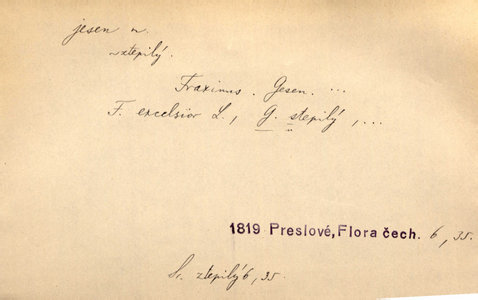 jesen m.
ztepilý.
Fraxinus. Gesen. ...
F. excelsior L., G. stepilý, ...
1819 Preslové, Flora čech. 6, 35.
Sr. ztepilý 6, 35.